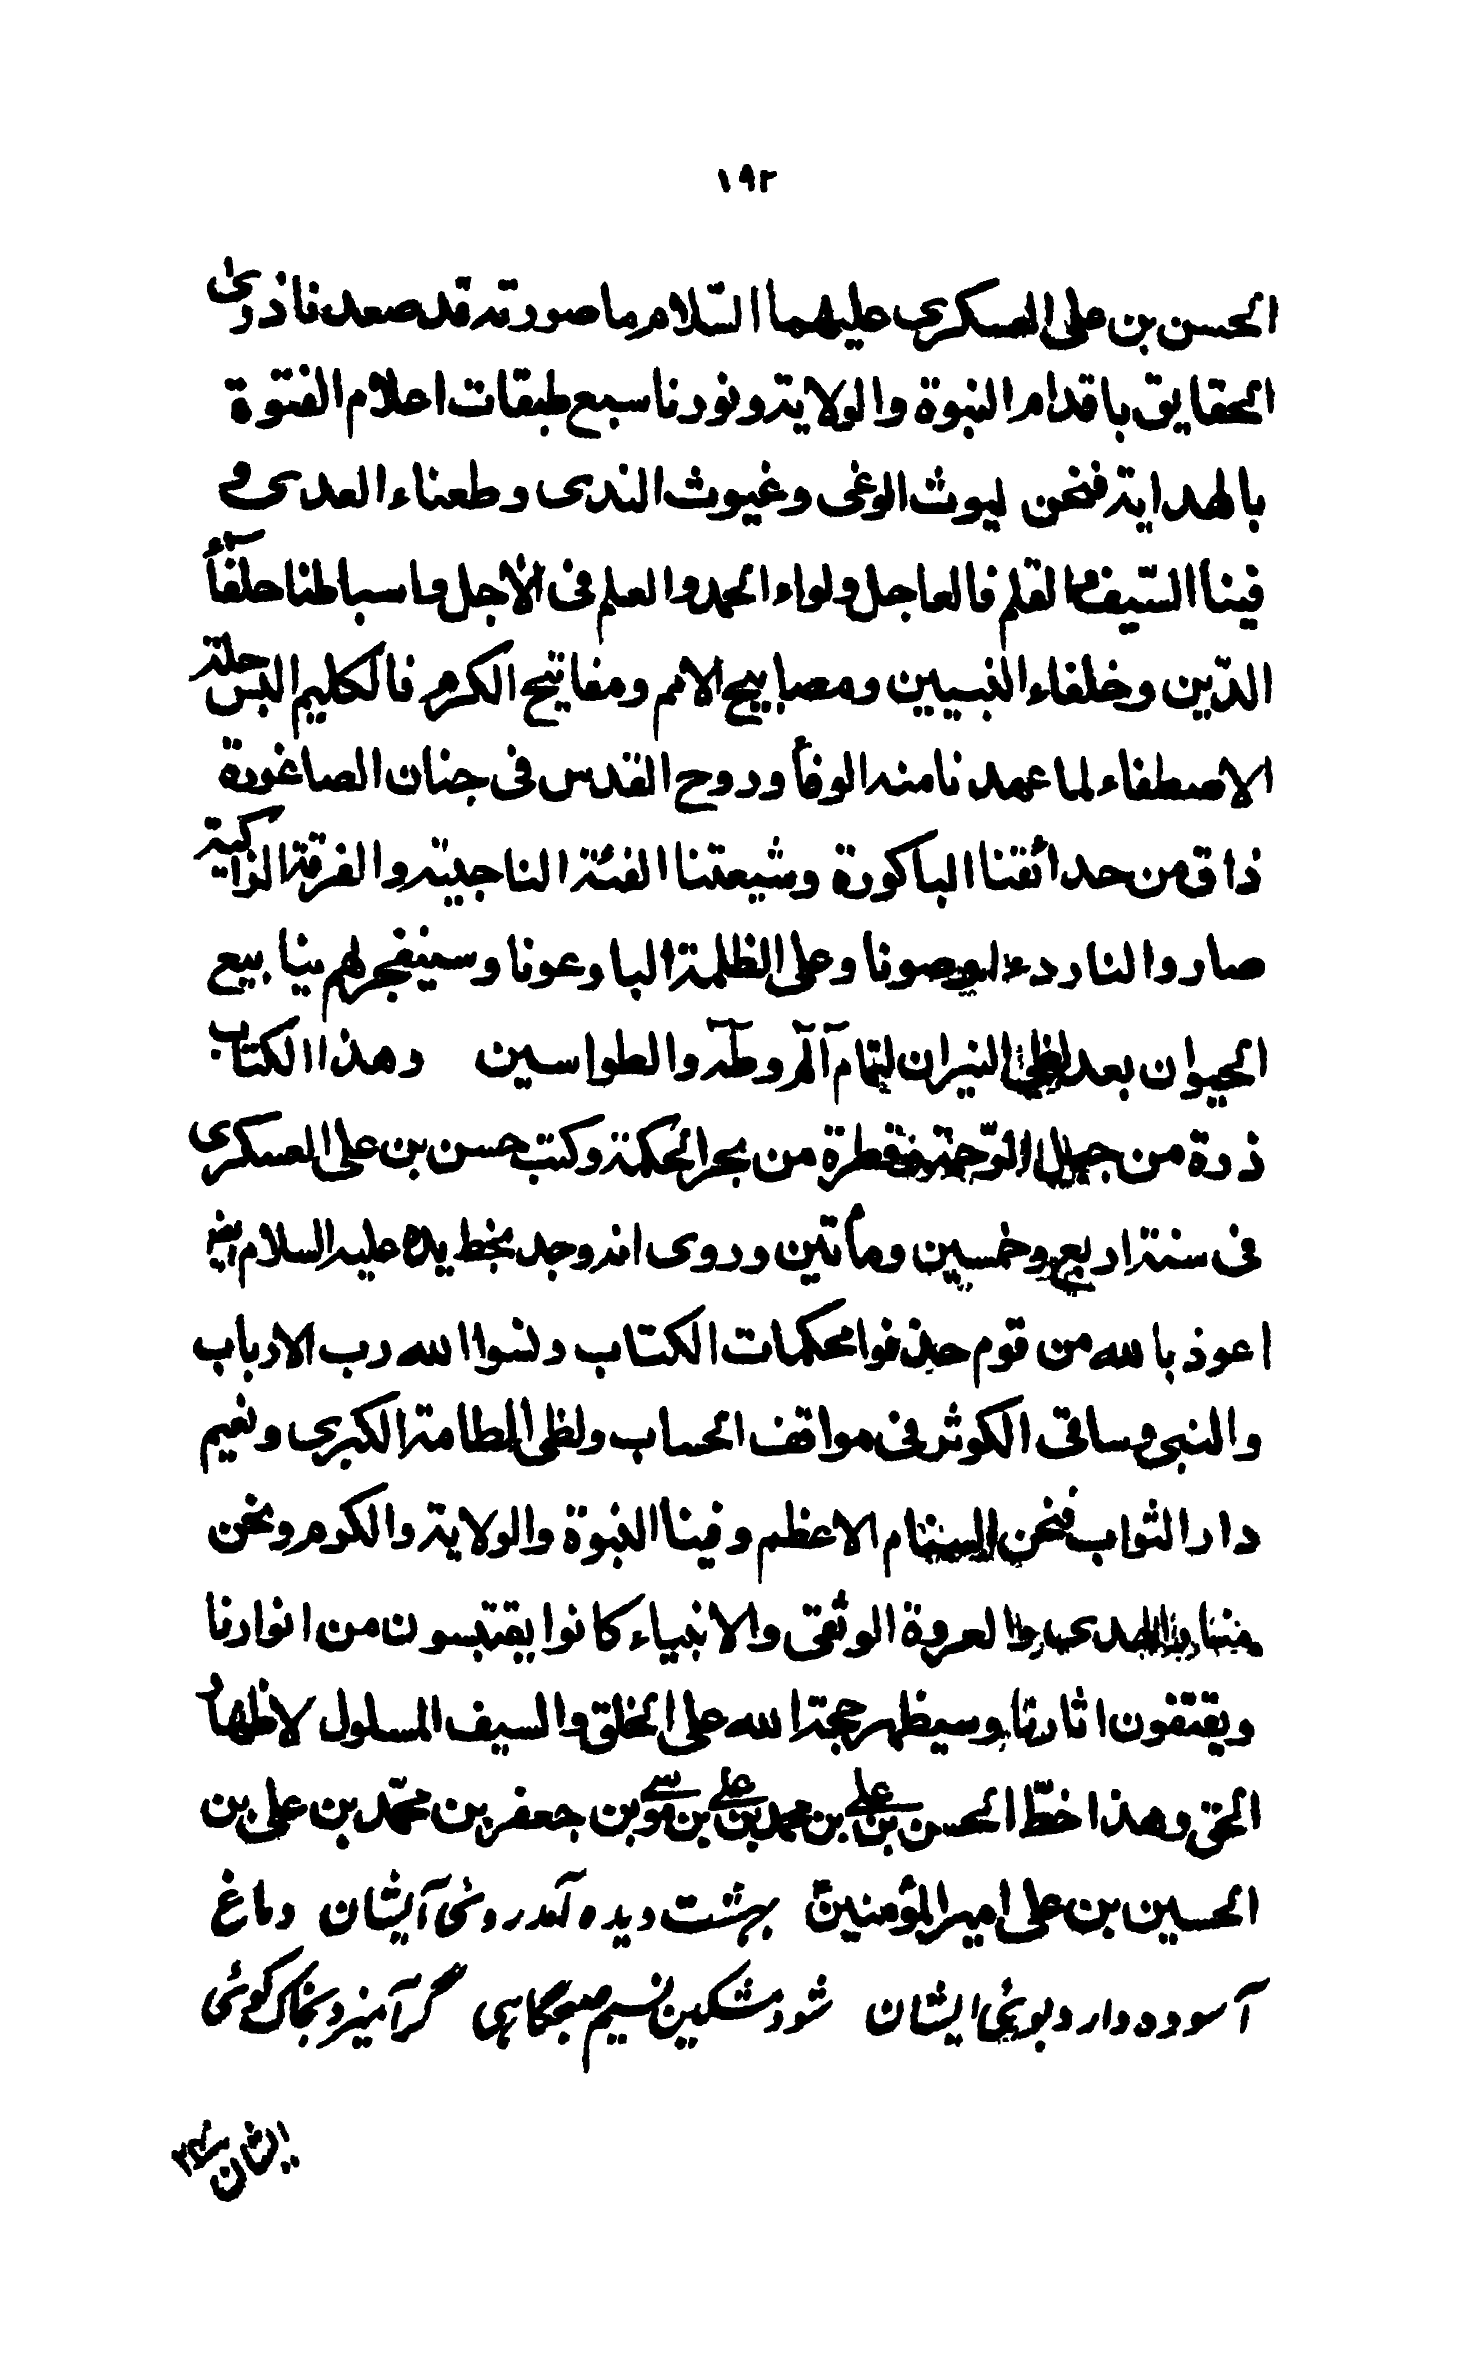 ١٩٢
الحسن بن على العسكرى عليهما السّلام ما صورته قد صعدنا ذرى
الحقايق باقدام النبوة والولاية ونورنا سبع طبقات اعلام الفتوة
بالهداية فنحن ليوث الوغى وغيوث الندى وطعناء العدى و
فينا السّيف والقلم فالعاجل ولواء الحمد والعلم فى الآجل واسباطنا حلفآء
الدّين وخلفاء النبيين ومصابيح الامم ومفاتيح الكرم فالكليم البس حلة
الاصطفاء لما عهدنا منه الوفأ وروح القدس فى جنان الصاغورة
ذاق من حدائقنا الباكورة وشيعتنا الفئة الناجية والفرقة الزاكية
صاروا لنا ردءا وصونا وعلى الظلمة البا وعونا وسينفجر لهم ينابيع
الحيوان بعد لظى النيران لتمام آلم وطه والطواسين وهذا الكتاب
ذرة من جبل الرّحمة وقطرة من بحر الحكمة وكتب حسن بن على العسكرى
فى سنة اربع وخمسين ومأتين وروى انه وجد بخط يده عليه السلام ايضا
اعوذ بالله من قوم حذفوا محكمات الكتاب ونسوا الله رب الارباب
والنبى وساقى الكوثر فى مواقف الحساب ولظى الطامة الكبرى ونعيم
دار الثواب فنحن السنام الاعظم وفينا النبوة والولاية والكرم ونحن
منار الهدى والعروة الوثقى والانبياء كانوا يقتبسون من انوارنا
ويقتفون اثارنا وسيظهر حجة الله على الخلق والسيف المسلول لاظهار
الحق وهذا خطّ الحسن بن على بن محمد بن على بن موسى بن جعفر بن محمّد بن على بن
الحسين بن على امير المؤمنين بهشت ديده آمد روئى آيشان دماغ
آسوده دارد بوئى ايشان شود مشكين نسيم صبحگاهى گر آميزد بخاك كوئى
ايشان